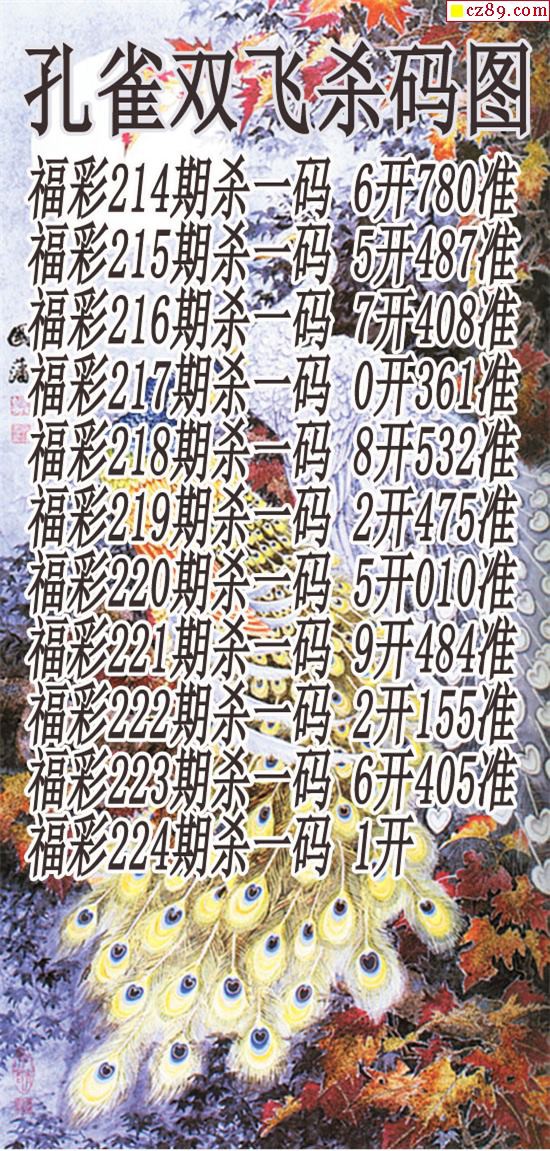 cz89.com
孔雀双飞杀码图
福彩214期杀一码 6开780准
福彩215期杀一码 5开487准
福彩216期杀一码 7开408准
福彩217期杀一码 0开361准
福彩218期杀一码 8开532准
福彩219期杀一码 2开475准
福彩220期杀一码 5开010准
福彩221期杀一码 9开484准
福彩222期杀一码 2开155准
福彩223期杀一码 6开405准
福彩224期杀一码 1开